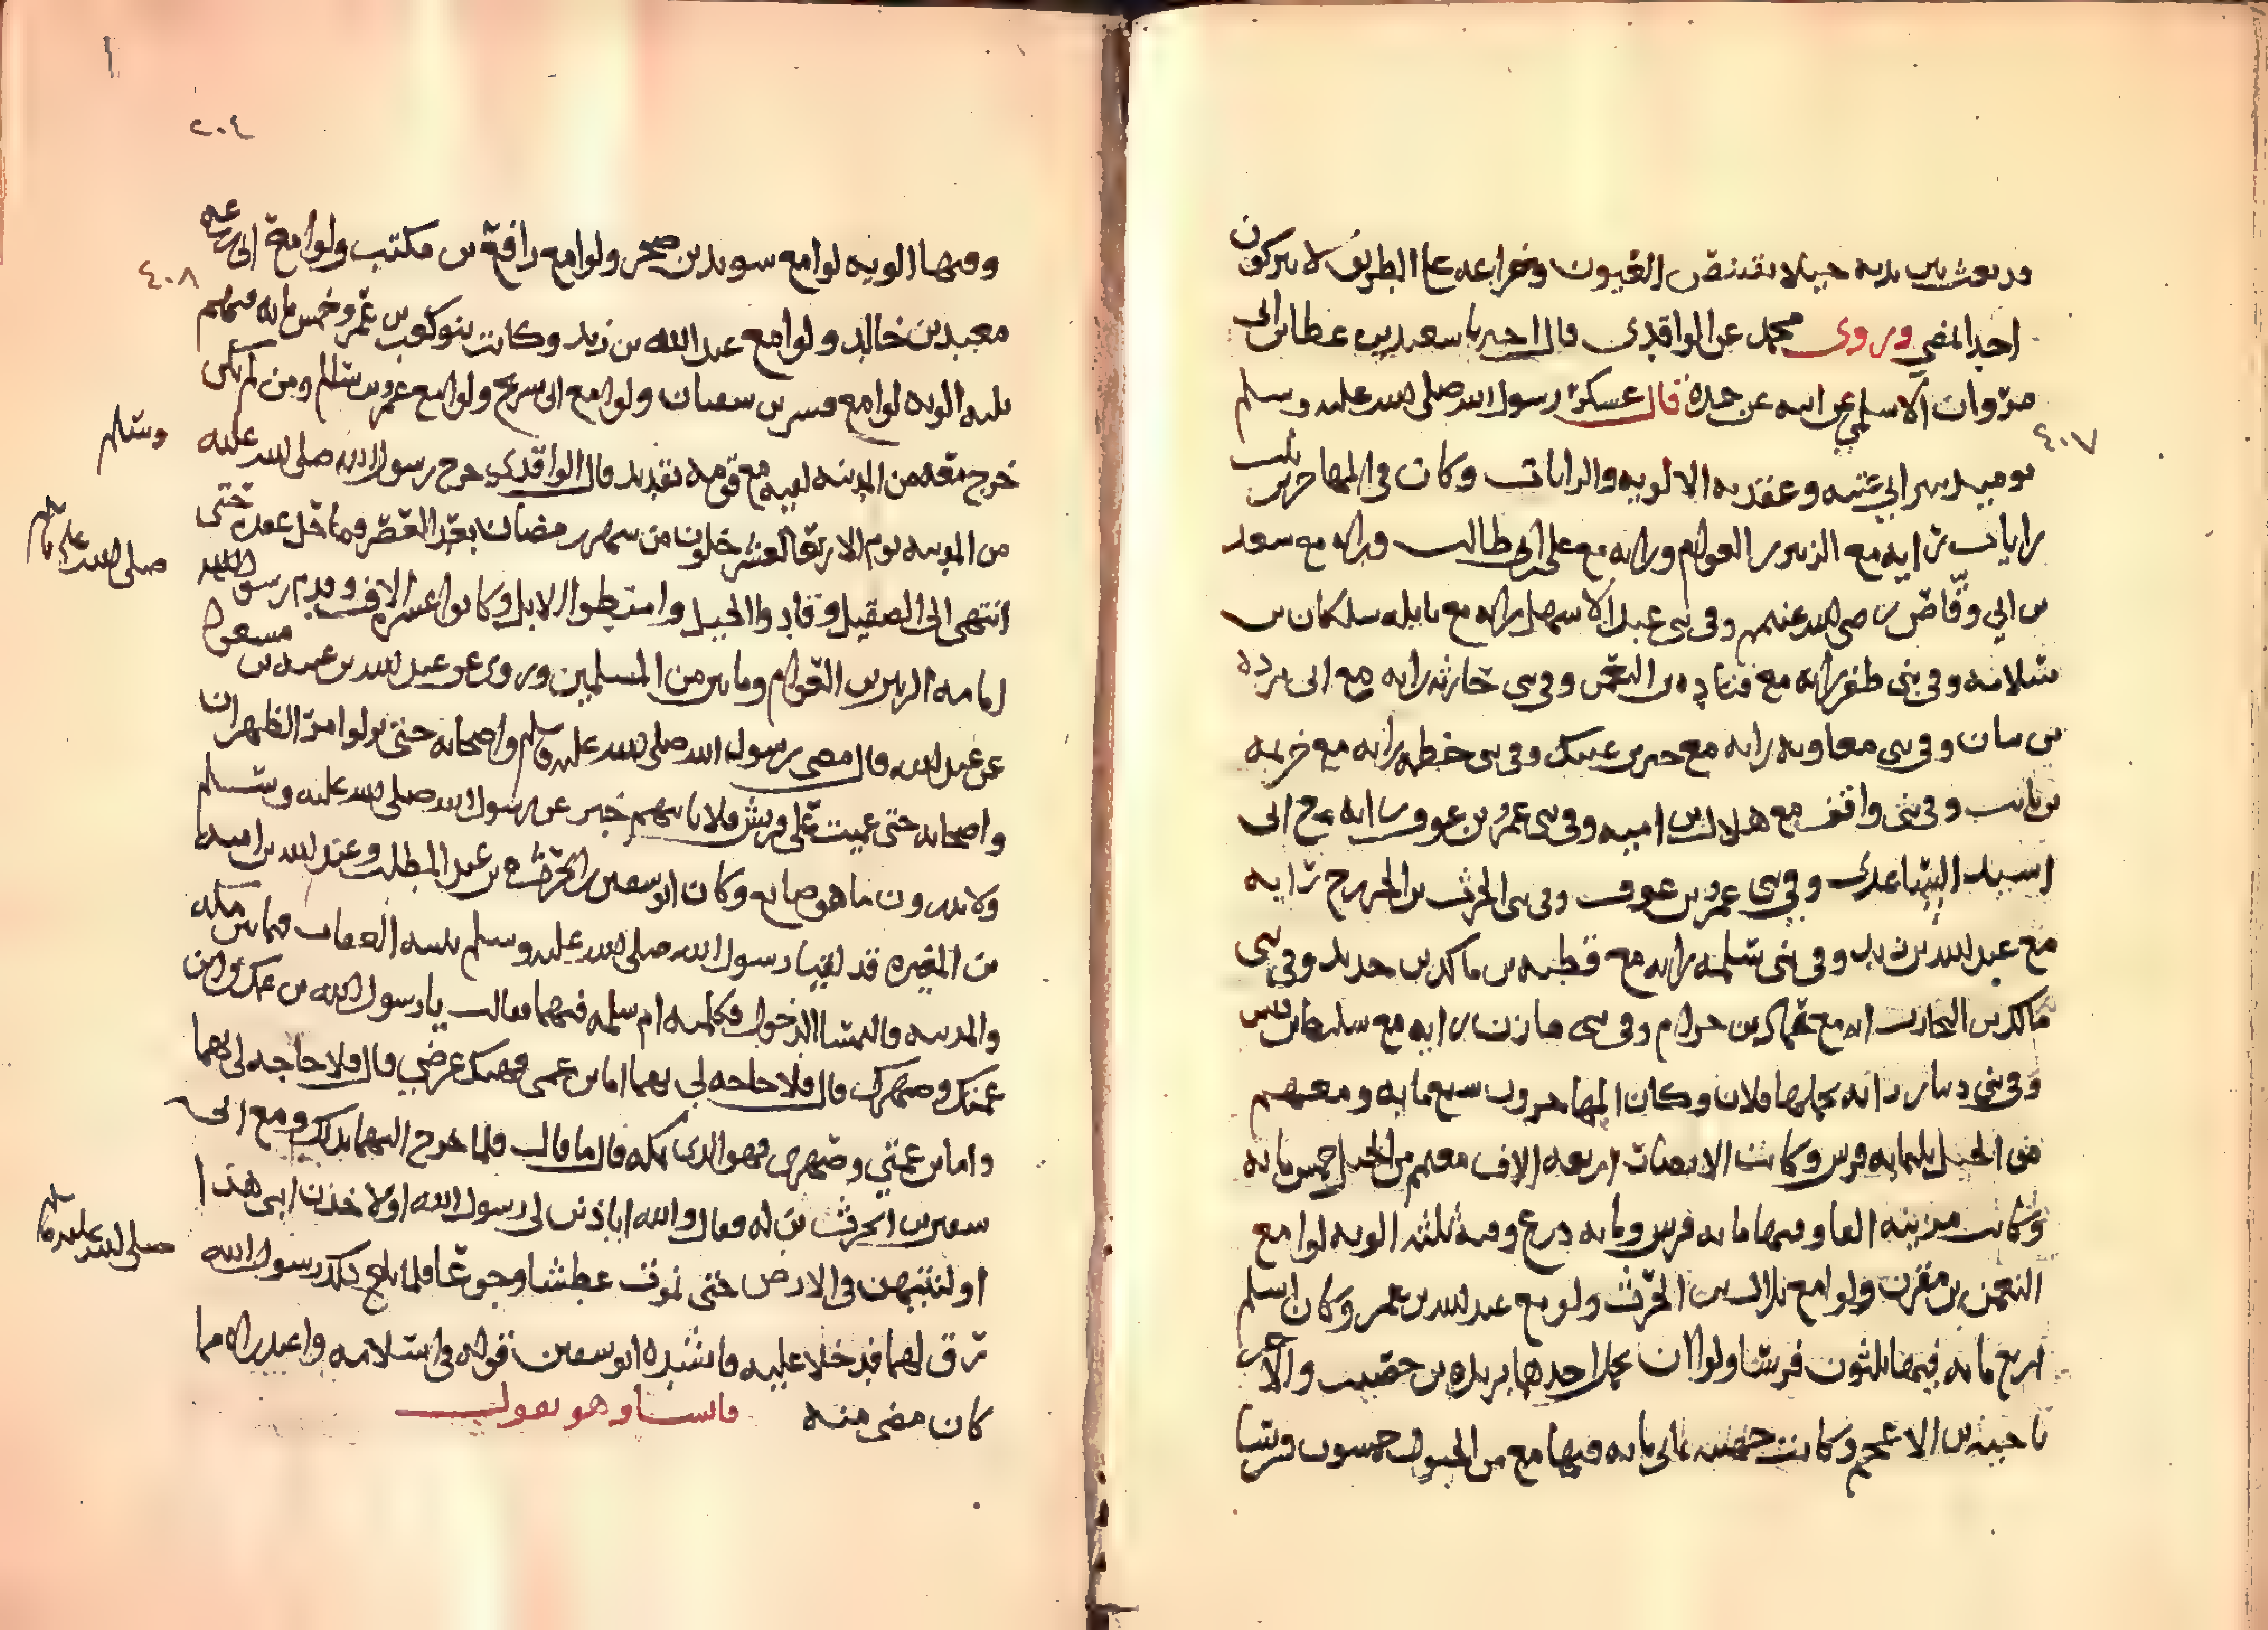 قد بعث بين يديه خيلا تقتنص العيون وخزاعه على الطريق لا يتركون
احدا يمضي وروى محمد عن الواقدي قال اخبرنا سعيد بن عطا بن ابي
مروان الاسلمي عن ابيه عن جده قال عسكر رسول الله صلى الله عليه وسلم
٤٠٧
يوميد ببير ابي عنبه وعقد به الالويه والرايات وكان في المهاجرين ثلث
رايات رايه مع الزبير بن العوام ورايه مع علي بن ابي طالب ورايه مع سعد
بن ابي وقاص رضي الله عنهم وفي بني عبد الاسهل رايه مع نايله سلكان بن
سلامه وفي بني ظفر رايه مع قتاده بن النعمن وفي بني حارثه رايه مع ابي برده
بن نيار وفي بني معاويه رايه مع جبر بن عتيك وفي بني خطمه رايه مع خزيمه
بن ثابت وفي بني واقف مع هلال بن اميه وفي بني عمرو بن عوف رايه مع ابي
اسيد الساعدي وفي بني عمرو بن عوف وفي بني الحرث بن الخزرج رايه
مع عبد الله بن زيد وفي بني سلمه رايه مع قطبه بن عامر بن حديد وفي بني
مالك بن النجار رايه مع عماره بن حزام وفي بني مازن رايه مع سليط بن قيس
وفي بني دينار رايه يحملها فلان وكان المهاجرون سبع مايه ومعهم
من الخيل ثلثمايه فرس وكانت الانصار اربعه الاف معهم من الخيل خمس مايه
وكانت مزينه الفا وفيها مايه فرس ومايه درع وفيه ثلثه الويه لوا مع
النعمن بن مقرن ولوا مع بلال بن الحرث ولو مع عبد الله بن عمر وكان اسلم
اربع مايه فيها ثلثون فرسا ولواان يحمل احدهما بريده بن حصيب والاخر
ناجيه بن الاعجم وكانت جهينه ثماني مايه فيها مع من الخيول خمسون فرسا
٢٠٤
وفيها الويه لوا مع سويد بن صخر ولوا مع رافع بن مكتب ولوا مع ابي زرعه
٤٠٨
معبد بن خالد ولوا مع عبد الله بن زيد وكانت بنو كعب بن عمرو خمس مايه فيهم
ثلثه الويه لوا مع بسر بن سفيان ولوا مع ابي سريح ولوا مع عمرو بن سالم ومن لم يكن
خرج معه من المدينه لقيه مع قومه بقديد قال الواقدي خرج رسول الله صلى الله عليه
وسلم
من المدينه يوم الاربعا لعشر خلون من شهر رمضان بعد العصر فما حل عقده حتى
انتهى الى الصقيل وقادوا الخيل وامتطوا الابل وكانوا عشره الاف وقدم رسول الله
صلى الله عليه وسلم
امامه الزبير بن العوام ومايتين من المسلمين وروى عن عبيد الله بن عبد الله بن مسعود
عن عبد الله قال مضى رسول الله صلى الله عليه وسلم واصحابه حتى نزلوا مر الظهران
واصحابه حتى عميت على قريش فلا ياتيهم خبر عن رسول الله صلى الله عليه وسلم
ولا يدرون ما هو صانع وكان ابو سفين بن الحرث بن عبد المطلب وعبد الله بن اميه
بن المغيره قد لقيا رسول الله صلى الله عليه وسلم بثنيه العقاب فيما بين مكه
والمدينه فالتمسا الدخول فكلمته ام سلمه فيهما فقالت يا رسول الله بن عمك وابن
عمتك وصهرك قال فلا حاجه لي بهما اما بن عمي فهتك عرضي قال فلا حاجه لي بهما
واما بن عمتي وصهري فهو الذي بمكه قال ما قال فلما خرج اليهما بذلك ومع ابي
سفين بن الحرث بن له فقال والله لياذنن لي رسول الله اولاخذن ابني هذا
او لنتيهن في الارض حتى نموت عطشا وجوعا فلما بلغ ذلك رسول الله
صلى الله عليه وسلم
رق لهما فدخلا عليه فانشده ابو سفين قوله في اسلامه واعتذاره مما
كان مضى منه فانسا وهو يقول